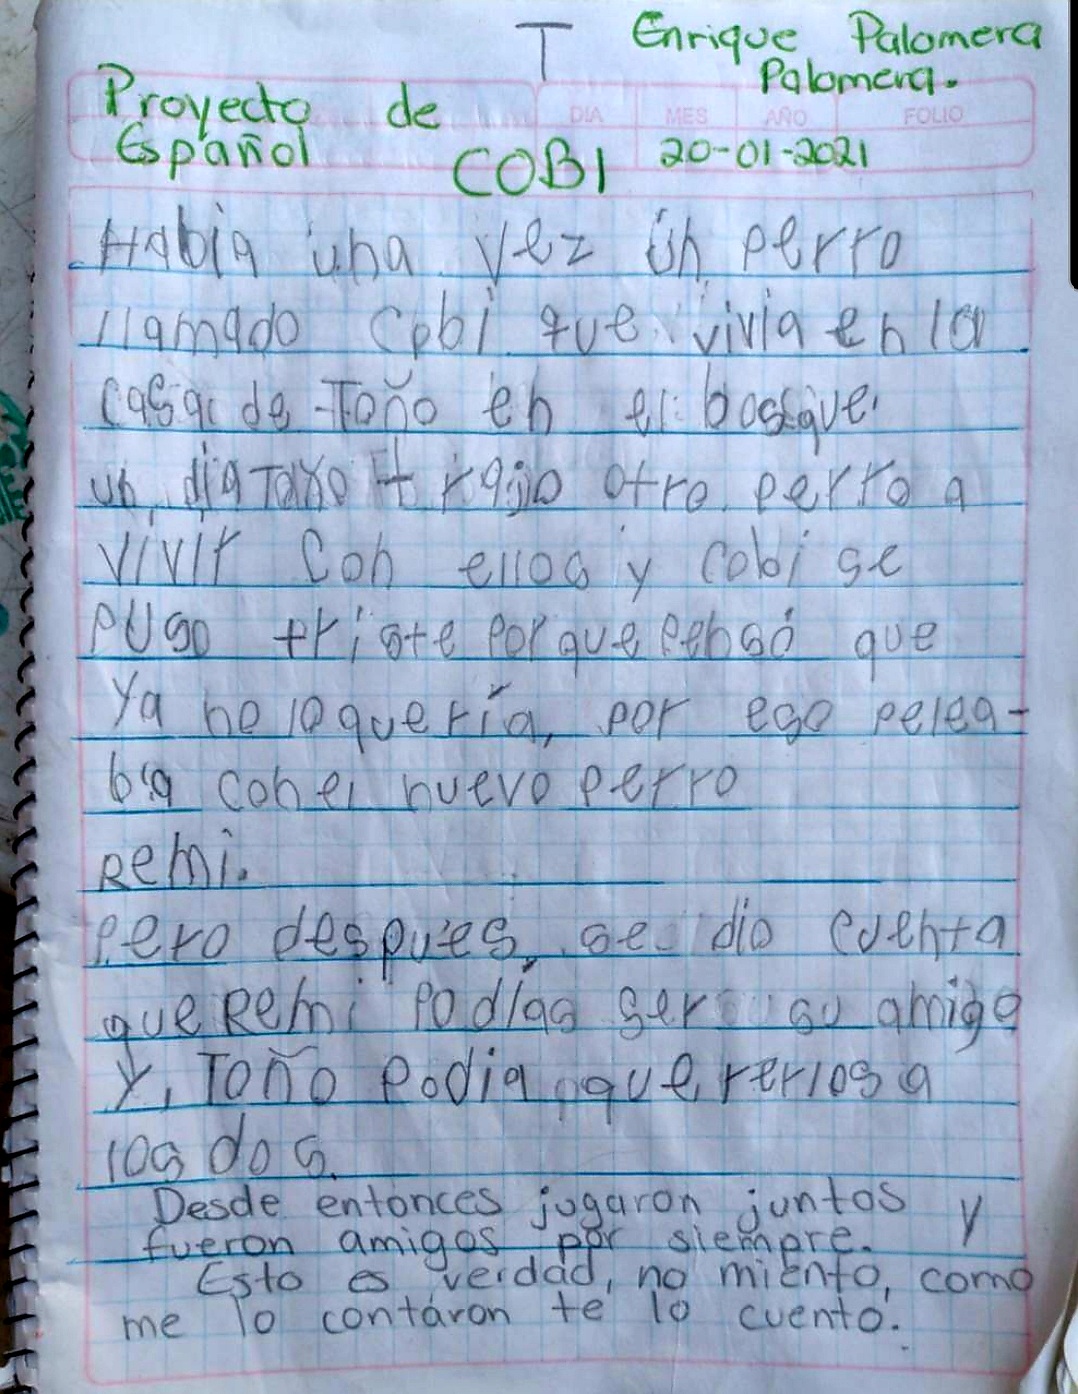 T Enrique Palomera
Palomera.
Proyecto de
Español
DIA MES AÑO FOLIO
COBI 20-01-2021
Había una vez un perro
llamado Cobi que vivia en la
casa de Toño en el bosque.
un dia Toño trajo otro perro a
vivir con ellos y cobi se
puso triste porque pensó que
Ya no lo quería, por eso pelea-
ba con el nuevo perro
Remi.
Pero despues, se dio cuenta
que Remi Podías ser su amigo
y, Toño Podia quererlos a
los dos.
Desde entonces jugaron juntos y
fueron amigos por siempre.
Esto es verdad, no miento, como
me lo contaron te lo cuento.